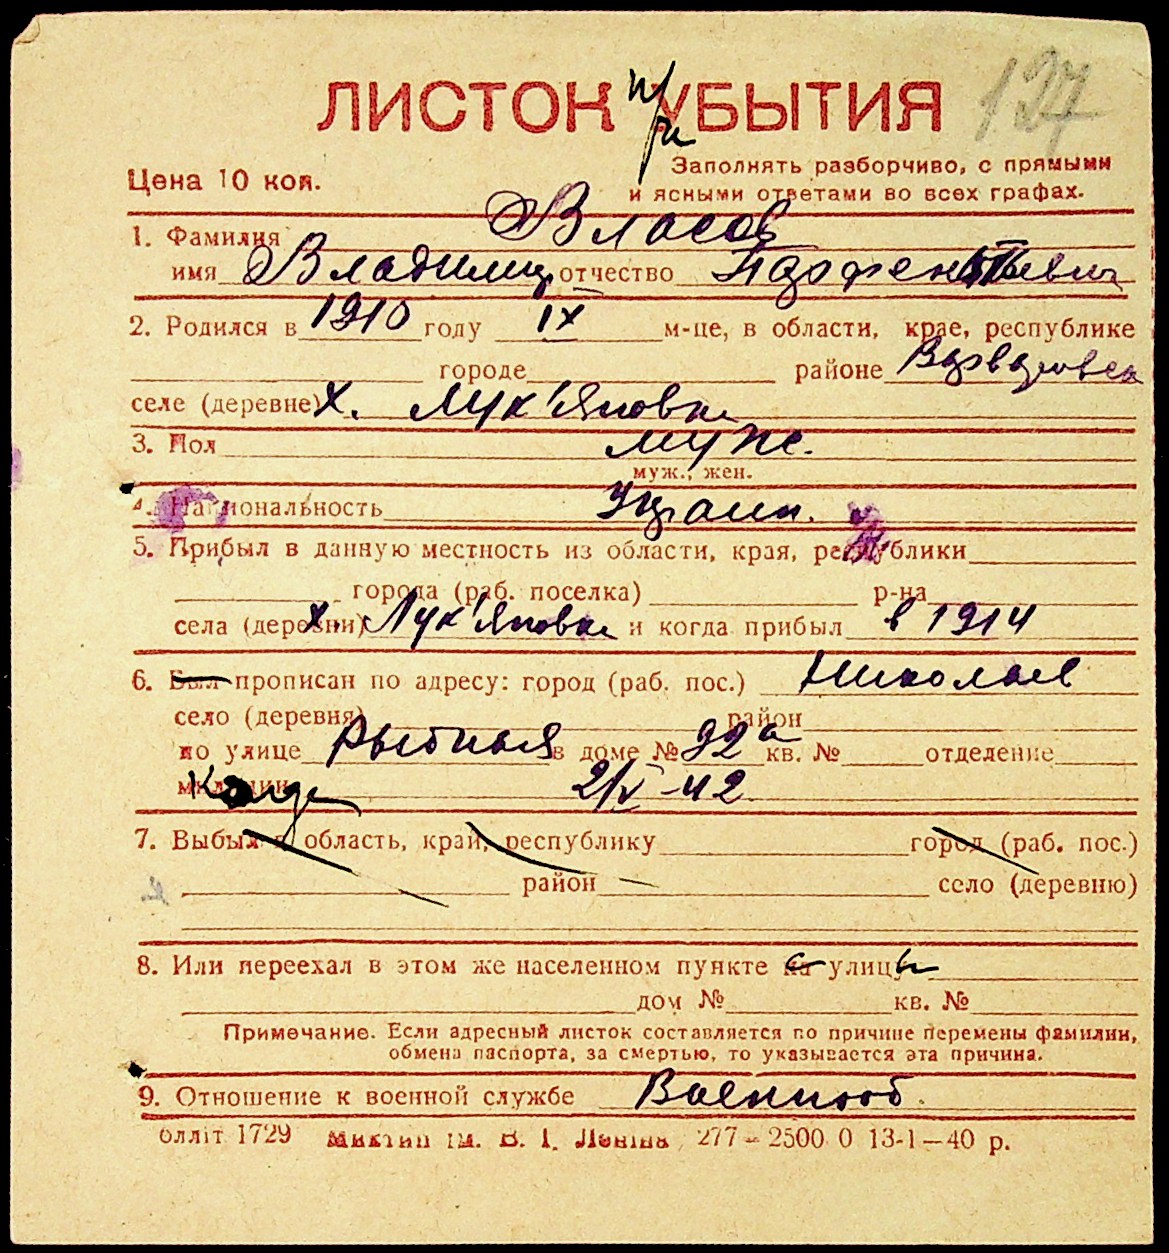 ЛИСТОК УБЫТИЯ
при
127
Цена 10 коп.
Заполнять разборчиво, с прямыми
и ясными ответами во всех графах.
1. Фамилия Власов
имя Владимир отчество Парфентьевич
2. Родился в 1910 году IX м-це, в области, крае, республике
городе районе Варваровск
селе (деревне) х. Лук'яновка
3. Пол муж.
муж., жен.
4. Национальность Украин.
5. Прибыл в данную местность из области, края, республики
города (раб. поселка) р-на
села (деревни) х. Лук'яновка и когда прибыл в 1914
6. Был прописан по адресу: город (раб. пос.) Николаев
село (деревня) район
по улице Рыбная в доме № 92а кв. № отделение
милиции когда 2/V-42
7. Выбыл в область, край, республику город (раб. пос.)
район село (деревню)
8. Или переехал в этом же населенном пункте на с улицы
дом № кв. №
Примечание. Если адресный листок составляется по причине перемены фамилии,
обмена паспорта, за смертью, то указывается эта причина.
9. Отношение к военной службе Военнооб.
Олліт 1729 Миктип ім. В. І. Леніна 277–2500 0 13-1–40 р.